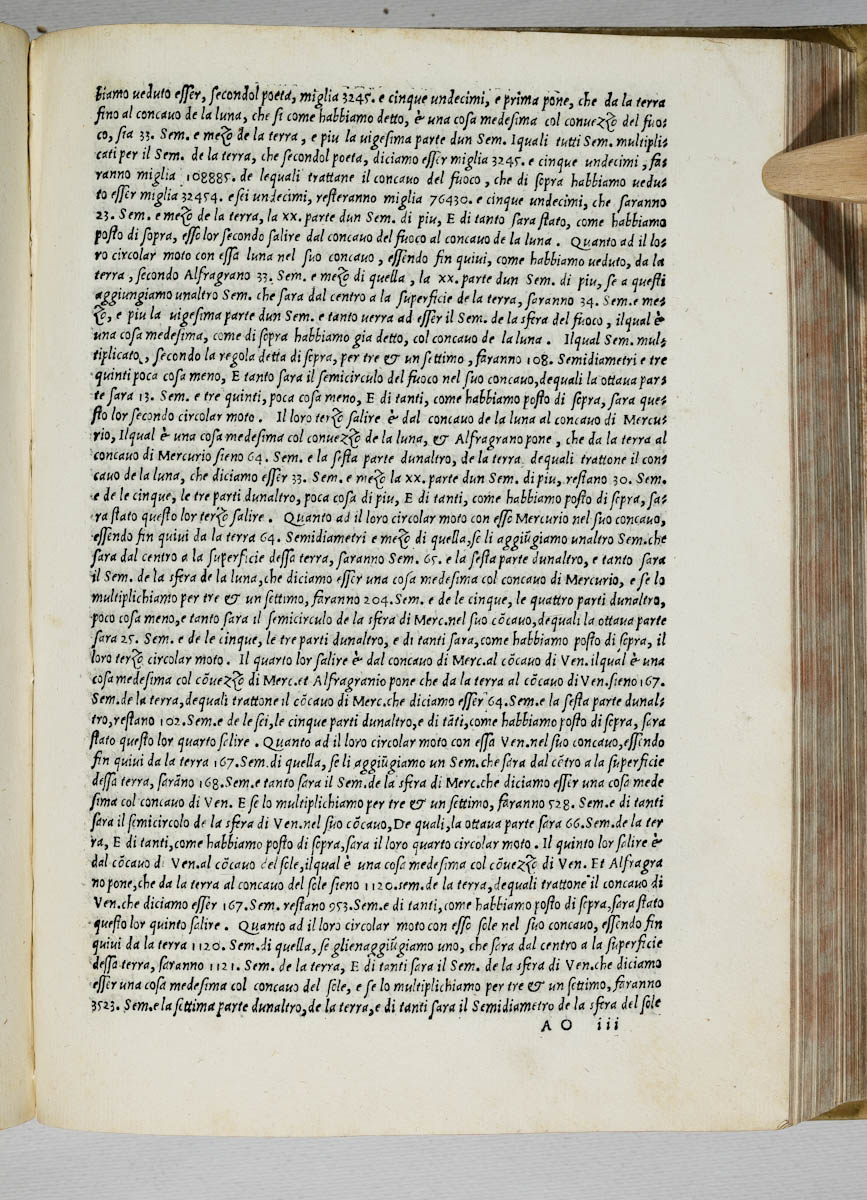 biamo ueduto esser, secondol poeta, miglia 3245. e cinque undecimi, e prima pone, che da la terra
fino al concauo de la luna, che si come habbiamo detto, è una cosa medesima col conuezzo del fuo-
co, sia 33. Sem. e mezo de la terra, e piu la uigesima parte dun Sem. Iquali tutti Sem. multipli-
cati per il Sem. de la terra, che secondol poeta, diciamo esser miglia 3245. e cinque undecimi, fa-
ranno miglia 108885. de lequali trattane il concauo del fuoco, che di sopra habbiamo uedu-
to esser miglia 32454. e sei undecimi, resteranno miglia 76430. e cinque undecimi, che saranno
23. Sem. e mezo de la terra, la xx. parte dun Sem. di piu, E di tanto sara stato, come habbiamo
posto di sopra, esso lor secondo salire dal concauo del fuoco al concauo de la luna. Quanto ad il lo-
ro circular moto con essa luna nel suo concauo, essendo fin quiui, come habbiamo ueduto, da la
terra, secondo Alfragrano 33. Sem. e mezo di quella, la xx. parte dun Sem. di piu, se a questi
aggiungiamo unaltro Sem. che sara dal centro a la superficie de la terra, saranno 34. Sem.e me-
zo, e piu la uigesima parte dun Sem. e tanto uerra ad esser il Sem. de la sfera del fuoco, ilqual è
una cosa medesima, come di sopra habbiamo gia detto, col concauo de la luna. Ilqual Sem. mul-
tiplicato, secondo la regola detta di sopra, per tre & un settimo, faranno 108. Semidiametri e tre
quinti poca cosa meno, E tanto sara il semicirculo del fuoco nel suo concauo, dequali la ottaua par-
te sara 13. Sem. e tre quinti, poca cosa meno, E di tanti, come habbiamo posto di sopra, sara que-
sto lor secondo circolar moto. Il loro terzo salire è dal concauo de la luna al concauo di Mercu-
rio, Ilqual è una cosa medesima col conuezzo de la luna, & Alfragrano pone, che da la terra al
concauo di Mercurio sieno 64. Sem. e la sesta parte dunaltro, de la terra. dequali trattone il con-
cauo de la luna, che diciamo esser 33. Sem. e mezo la xx. parte dun Sem. di piu, restano 30. Sem.
e de le cinque, le tre parti dunaltro, poca cosa di piu, E di tanti, come habbiamo posto di sopra, sa-
ra stato questo lor terzo salire. Quanto ad il loro circular moto con esso Mercurio nel suo concauo,
essendo fin quiui da la terra 64. Semidiametri e mezo di quella, se li aggiũgiamo unaltro Sem.che
sara dal centro a la superficie dessa terra, saranno Sem. 65. e la sesta parte dunaltro, e tanto sara
il Sem. de la sfera de la luna, che diciamo esser una cosa medesima col concauo di Mercurio, e se lo
multiplichiamo per tre & un settimo, faranno 204. Sem. e de le cinque, le quattro parti dunaltro,
poco cosa meno, e tanto sara il semicirculo de la sfera di Merc.nel suo cõcauo, dequali la ottaua parte
sara 25. Sem. e de le cinque, le tre parti dunaltro, e di tanti sara, come habbiamo posto di sopra, il
loro terzo circular moto. Il quarto lor salire è dal concauo di Merc.al cõcauo di Ven.ilqual è una
cosa medesima col cõuezzo di Merc.et Alfragranio pone che da la terra al cõcauo di Ven.sieno 167.
Sem.de la terra, dequali trattone il cõcauo di Merc.che diciamo esser 64.Sem.e la sesta parte dunal-
tro, restano 102.Sem.e de le sei, le cinque parti dunaltro, e di tãti, come habbiamo posto di sopra, sara
stato questo lor quarto salire. Quanto ad il loro circular moto con essa Ven.nel suo concauo, essendo
fin quiui da la terra 167.Sem.di quella, se li aggiũgiamo un Sem.che sara dal cẽtro a la superficie
dessa terra, sarãno 168.Sem.e tanto sara il Sem.de la sfera di Merc.che diciamo esser una cosa mede
sima col concauo di Ven. E se lo multiplichiamo per tre & un settimo, faranno 528. Sem.e di tanti
sara il semicircolo de la sfera di Ven.nel suo cõcauo, De quali, la ottaua parte sara 66.Sem.de la ter
ra, E di tanti, come habbiamo posto di sopra, sara il loro quarto circolar moto. Il quinto lor salire è
dal cõcauo di Ven.al cõcauo del sole, ilqual è una cosa medesima col cõuezzo di Ven. Et Alfragra
no pone, che da la terra al concauo del sole sieno 1120.sem.de la terra, dequali trattone il concauo di
Ven.che diciamo esser 167.Sem. restano 953.Sem.e di tanti, come habbiamo posto di sopra, sara stato
questo lor quinto salire. Quanto ad il loro circular moto con esso sole nel suo concauo, essendo fin
quiui da la terra 1120. Sem.di quella, se glienaggiũgiamo uno, che sara dal centro a la superficie
dessa terra, saranno 1121. Sem. de la terra, E di tanti sara il Sem. de la sfera di Ven.che diciamo
esser una cosa medesima col concauo del sole, e se lo multiplichiamo per tre & un settimo, faranno
3523. Sem.e la settima parte dunaltro, de la terra, e di tanti sara il Semidiametro de la sfera del sole
AO iii